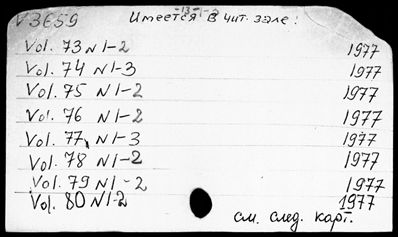 V3659 Имеется в чит. зале:
-13-1-2
Vol. 73 N1-2 1977
Vol. 74 N1-3 1977
Vol. 75 N1-2 1977
Vol. 76 N1-2 1977
Vol. 77, N1-3 1977
Vol. 78 N1-2 1977
Vol. 79 N1-2 1977
Vol. 80 N1-2 1977
см. след. карт.